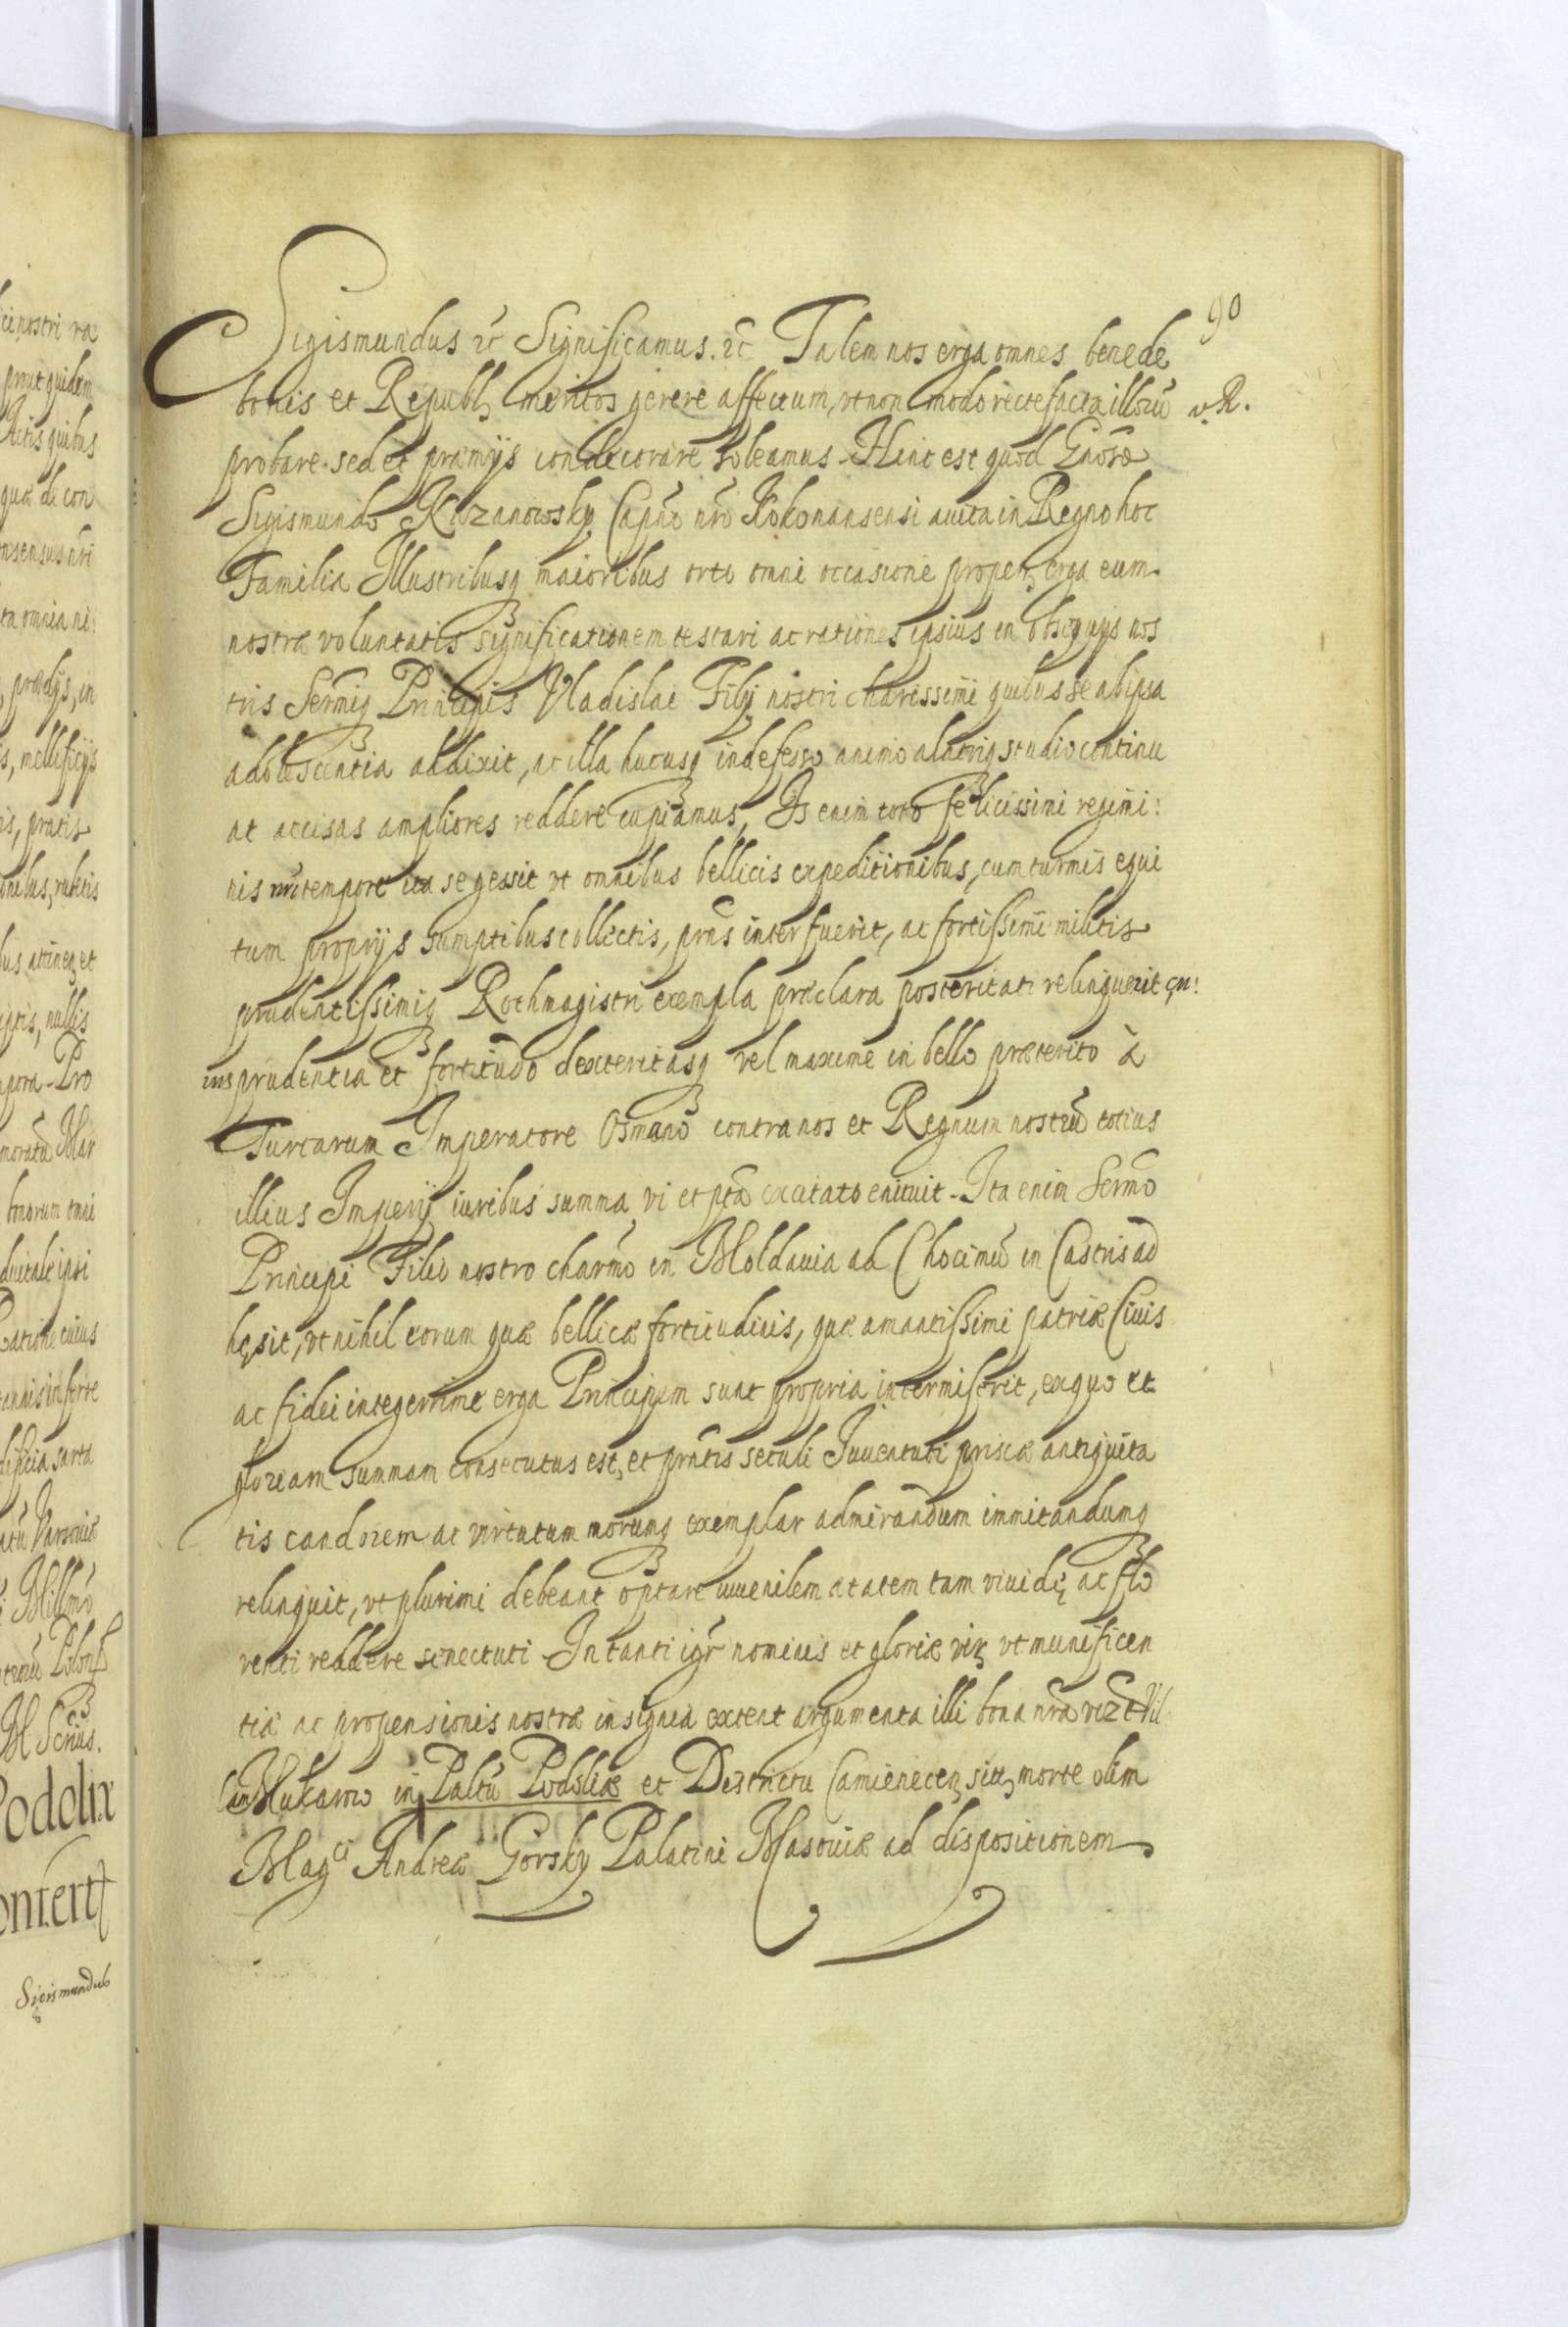 90
Sigismundus etc Significamus. etc Talem nos erga omnes bene de
v. R.
bonis et Republ meritos gerere affectum, vt non modo recte facta illorū
probare sed et præmijs condecorare soleamus. Hinc est quod Gnoso
Sigismundo Kazanowsky Capño nrō Kokonansensi auita in Regno hoc
Familia Illustribusq maioribus orto omni occasione propen erga eum
nostræ voluntatis significationem testari ac rationes ipsius in obsequijs nos
tris Sermiq Principis Vladislai Filij nostri charissimi quibus se ab ipsa
adolescentia addixit, ac illa hucusq indefesso animo alacriq studio continu
at accisas ampliores reddere cupiamus, Is enim toto felicissimi regimi:
nis nrī tempore ita se gessit vt omnibus bellicis expeditionibus, cum turmis equi
tum proprijs sumptibus collectis, prns interfuerit, ac fortissimi militis
prudentissimiq Rothmagistri exempla præclara posteritati relinquerit cu:
ius prudentia et fortitudo dexteritasq vel maxime in bello præterito à
Turcarum Imperatore Osmano contra nos et Regnum nostrū totius
illius Imperij viribus summa vi et ptā excitato enituit. Ita enim Sermō
Principi Filio nostro charmō in Moldauia ad Chocimū in Castris ad
hęsit, vt nihil eorum quæ bellicæ fortitudinis, quæ amantissimi patriæ Ciuis
ac fidei integerrimæ erga Principem sunt propria intermiserit, ex quo et
gloriam summam consecutus est, et prñtis seculi Iuuentuti priscæ antiquita
tis candorem ac virtutum morumq exemplar admirandum immitandumq
relinquit, vt plurimi debeant optare iuuenilem ætatem tam viuidę ac flo
renti reddere senectuti. In tanti igr nominis et gloriæ viri vt munificen
tiæ ac propensionis nostræ insignia extent argumenta illi bona nrā vizt Vil
lam Makarow in Paltū Podoliæ et Districtu Camienecen sitt, morte olim
Magci Andreæ Gorsky Palatini Masouiæ ad dispositionem